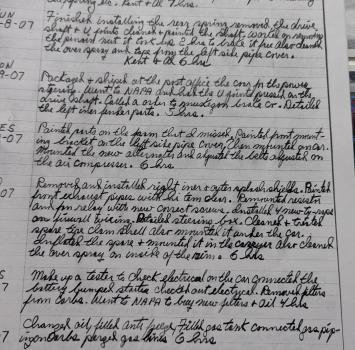 Kent & Al 7 hrs.
SUN
8-07
Finished installing the rear spring removed the drive
shaft & U joints cleaned & painted the shaft, worked on removing
the pinion nut it took us 2 hrs to break it free also cleaned
the over spray and tape from the left side pipe cover.
Kent & Al 6 hrs
MON
9-07
Packaged & shipped at the post office the core for the power
steering. Went to NAPA and had the U joints pressed on the
drive shaft. Called & order to muskegon brake co. Detailed
the left inner fender parts. 5 hrs.
ES
07
Painted parts on the farm that I missed. Painted front mount-
ing bracket on the left side pipe cover, then mounted on car.
Mounted the new alternator and adjusted the belts adjusted on
the air compressor. 6 hrs.
07
Removed and installed right inner & outer splash shields. Painted
front exhaust pipes with hi tem clear. Remounted resistor
and horn relay with new correct screws. Installed
on firewall wiring. Detailed steering box. Cleaned & painted
spare tire clam shell also mounted it under the car.
Inflated the spare & mounted it in the carrier also cleaned
the over spray on inside of the rim. 6 hrs
S
07
Make up a tester to check electrical on the car connected the
battery bumped starter checked out electrical. Removed filters
from carbs. Went to NAPA to buy new filters & oil 4 hrs
07
Changed oil, filled anti freeze, filled gas tank connected gas pip-
ing on carbs purged gas lines 6 hrs